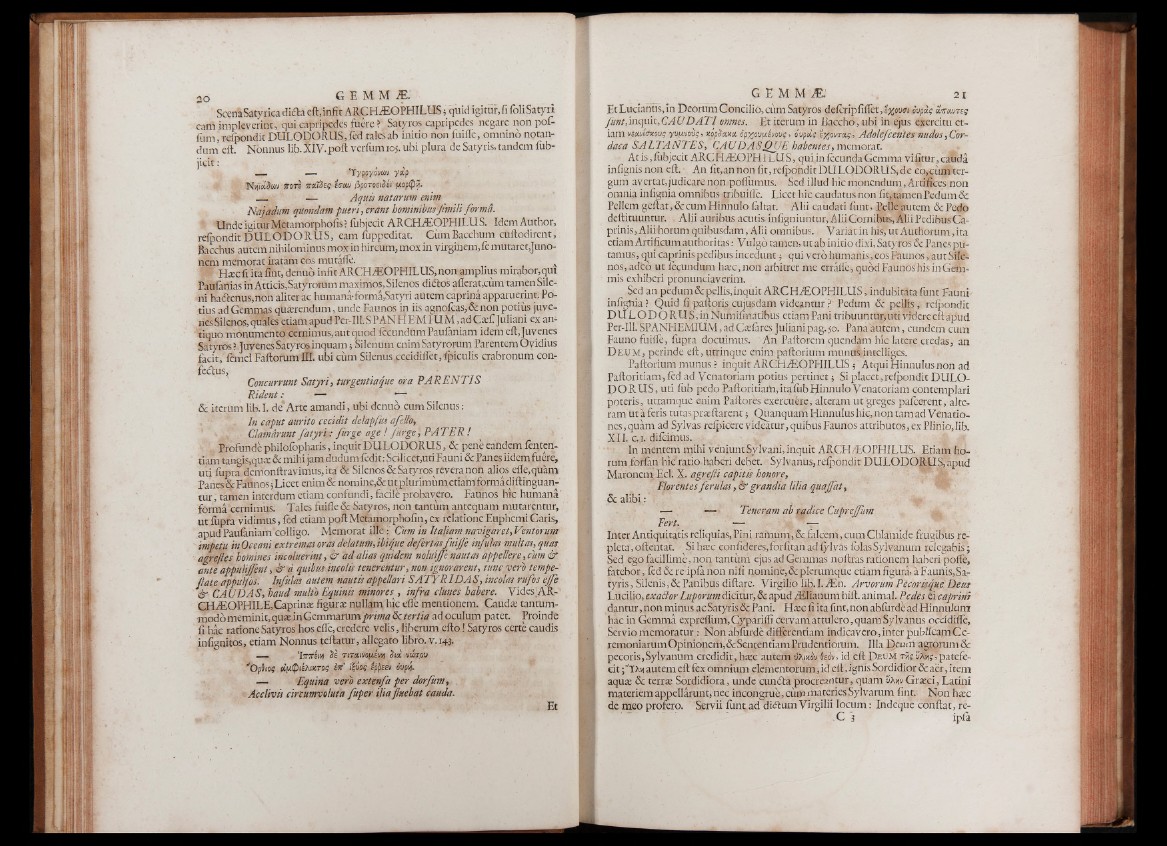 20 GEMMÆ.
Scena Satyrica dicta est, infit ARCHÆOPHILUS; quid igitur, si soli Satyri
eam impleverint, qui capripedes fuêre? Satyros capripedes negare non pos-
sum, respondit DULODORUS, sed tales ab initio non fuisse, omninò notan-
dum est. Nonnus lib. XIV. post versum 105. ubi plura de Satyris, tandem sub-
jicit:
— — Ὑγρογόνων γὰρ
Νηϊάδων ποτὲ παῖδες ἔσαν βροτοειδέϊ μορφῇ.
— — Aquis natarum enim
Najadum quondam pueri, erant hominibus simili formâ.
Unde igitur Metamorphosis? subjecit ARCHÆOPHILUS. Idem Author,
respondit DULODORUS, eam suppeditat. Cùm Bacchum custodirent,
Bacchus autem nihilominus mox in hircum, mox in virginem, se mutaret, Juno-
nem memorat iratam eos mutâsse.
Hæc si ita sint, denuò infit ARCHÆOPHILUS, non ampliùs mirabor, qui
Pausanias in Atticis, Satyrorum maximos, Silenos dictos asserat, cùm tamen Sile-
ni hactenus, non aliter ac humanâ formâ, Satyri autem caprinâ apparuerint. Po-
tiùs ad Gemmas quærendum, unde Faunos in iis agnoscas, & non potiùs juve-
nes Silenos, quales etiam apud Per-Ill. SPANHEMIUM, ad Cæs. Juliani ex an-
tiquo monumento cernimus, aut quod secundùm Pausaniam idem est, Juvenes
Satyros? Juvenes Satyros inquam; Silenum enim Satyrorum Parentem Ovidius
facit, semel Fastorum III. ubi cùm Silenus cecidisset, spiculis crabronum con-
fectus,
Concurrunt Satyri, turgentiaque ora PARENTIS
Rident: — —
& iterum lib. I. de Arte amandi, ubi denuò cum Silenus:
In caput aurito cecidit delapsus asello,
Clamârunt satyri: surge age! surge, PATER!
Profundè philosopharis, inquit DULODORUS, & penè eandem senten-
tiam tangis, quæ & mihi jam dudum sedit: Scilicet, uti Fauni & Panes iidem fuêre,
uti supra demonstravimus, ita & Silenos & Satyros revera non alios esse, quàm
Panes & Faunos; Licet enim & nomine, & ut plurimùm etiam formâ distinguan-
tur, tamen interdum etiam confundi, facile probavero. Faunos hìc humanâ
formâ cernimus. Tales fuisse & Satyros, non tantùm antequam mutarentur,
ut supra vidimus, sed etiam post Metamorphosin, ex relatione Euphemi Caris,
apud Pausaniam colligo. Memorat ille: Cùm in Italiam navigaret, Ventorum
impetu in Oceani extremas oras delatum, ibique desertas fuisse insulas multas, quas
agrestes homines incoluerint, & ad alias quidem noluisse nautas appellere, cùm &
ante appulissent, & à quibus incolis tenerentur, non ignorarent, tunc verò tempe-
state appulsos. Insulas autem nautis appellari SATYRIDAS, incolas rufos esse
& CAUDAS, haud multò Equinis minores, infra clunes habere. Vides AR-
CHÆOPHILE, Caprinæ figuræ nullam hìc esse mentionem. Caudæ tantum-
modò meminit, quæ in Gemmarum prima & tertia ad oculum patet. Proinde
si hâc ratione Satyros hos esse, credere velis, liberum esto! Satyros certè caudis
insignitos, etiam Nonnus testatur, allegato libro, v. 143.
— Ἱππείη δὲ τιταινομένη διὰ νώτου
Ὄρθιος ἀμφιέλικτος ἐπ' ἰξύος ἔρρεεν οὐρή.
— Equina verò extensa per dorsum,
Acclivis circumvoluta super ilia fluebat cauda.
Et
GEMMÆ. 21
Et Lucianus, in Deorum Concilio, cùm Satyros descripsisset, ἔχουσι οὐρὰς ἅπαντες
sunt, inquit, CAUDATI omnes. Et iterum in Baccho, ubi in ejus exercitu et-
iam νεανίσκους γυμνοὺς, κόρδακα ὀρχουμένους, οὐρὰς ἔχοντας, Adolescentes nudos, Cor-
daca SALTANTES, CAUDASQUE habentes, memorat.
At is, subjecit ARCHÆOPHILUS, qui in secunda Gemma visitur, caudâ
insignis non est. An sit, an non sit, respondit DULODORUS, de eo, cùm ter-
gum avertat, judicare non possumus. Sed illud hic monendum, Artifices non
omnia insignia omnibus tribuisse. Licet hic caudatus non sit, tamen Pedum &
Pellem gestat, & cum Hinnulo saltat. Alii caudati sunt, Pelle autem & Pedo
destituuntur. Alii auribus acutis insigniuntur, Alii Cornibus, Alii Pedibus Ca-
prinis, Alii horum quibusdam, Alii omnibus. Variat in his, ut Authorum, ita
etiam Artificum authoritas: Vulgò tamen, ut ab initio dixi, Satyros & Panes pu-
tamus, qui caprinis pedibus incedunt; qui verò humanis, eos Faunos, aut Sile-
nos, adeò ut secundùm hæc, non arbitrer me errâsse, quòd Faunos his in Gem-
mis exhiberi pronunciaverim.
Sed an pedum & pellis, inquit ARCHÆOPHILUS, indubitata sunt Fauni
insignia? Quid si pastoris cujusdam videantur? Pedum & pellis, respondit
DULODORUS, in Numismatibus etiam Pani tribuuntur, uti videre est apud
Per-Ill. SPANHEMIUM, ad Cæsares Juliani pag. 50. Pana autem, eundem cum
Fauno fuisse, supra docuimus. An Pastorem quendam hîc latere credas, an
DEUM, perinde est, utrinque enim pastorium munus intelliges.
Pastorium munus? inquit ARCHÆOPHILUS; Atqui Hinnulus non ad
Pastoritiam, sed ad Venatoriam potius pertinet; Si placet, respondit DULO-
DORUS, uti sub pedo Pastoritiam, ita sub Hinnulo Venatoriam contemplari
poteris, utramque enim Pastores exercuêre, alteram ut greges pascerent, alte-
ram ut à feris tutas præstarent; Quanquam Hinnulus hîc, non tam ad Venatio-
nes, quàm ad Sylvas respicere videatur, quibus Faunos attributos, ex Plinio, lib.
XII. c. 1. discimus.
In mentem mihi veniunt Sylvani, inquit ARCHÆOPHILUS. Etiam ho-
rum forsan hîc ratio haberi debet. Sylvanus, respondit DULODORUS, apud
Maronem Ecl. X. agresti capitis honore,
Florentes ferulas, & grandia lilia quassat,
& alibi:
— — Teneram ab radice Cupressum
Fert. — —
Inter Antiquitatis reliquias, Pini ramum, & falcem, cum Chlamide frugibus re-
pleta, ostentat. Si hæc consideres, forsitan ad sylvas solas Sylvanum relegabis;
Sed ego facillimè, non tantùm ejus ad Gemmas nostras rationem haberi posse,
fatebor, sed & re ipsâ non nisi nomine, & plerumque etiam figurâ, à Faunis, Sa-
tyris, Silenis, & Panibus distare. Virgilio lib. I. Æn. Arvorum Pecorisque Deus
Lucilio, exactor Luporum dicitur, & apud Ælianum hist. animal. Pedes ei caprini
dantur, non minus ac Satyris & Pani. Hæc si ita sint, non absurdè ad Hinnulum
hâc in Gemmâ expressum, Cyparissi cervam attulero, quam Sylvanus occidisse,
Servio memoratur: Non absurdè differentiam indicavero, inter publicam Ce-
remoniarum Opinionem, & Sententiam Prudentiorum. Illa Deum agrorum &
pecoris, Sylvanum credidit, hæc autem ὑλικὸν θεὸν, id est DEUM τῆς ὕλης, patefe-
cit; Ὕλη autem est fex omnium elementorum, id est, ignis Sordidior & aër, item
aquæ & terræ Sordidiora, unde cuncta procreantur, quam ὕλην Græci, Latini
materiem appellârunt, nec incongruè, cùm materies Sylvarum sint. Non hæc
de meo profero. Servii sunt ad dictum Virgilii locum: Indeque constat, re-
C 3 ipsâ